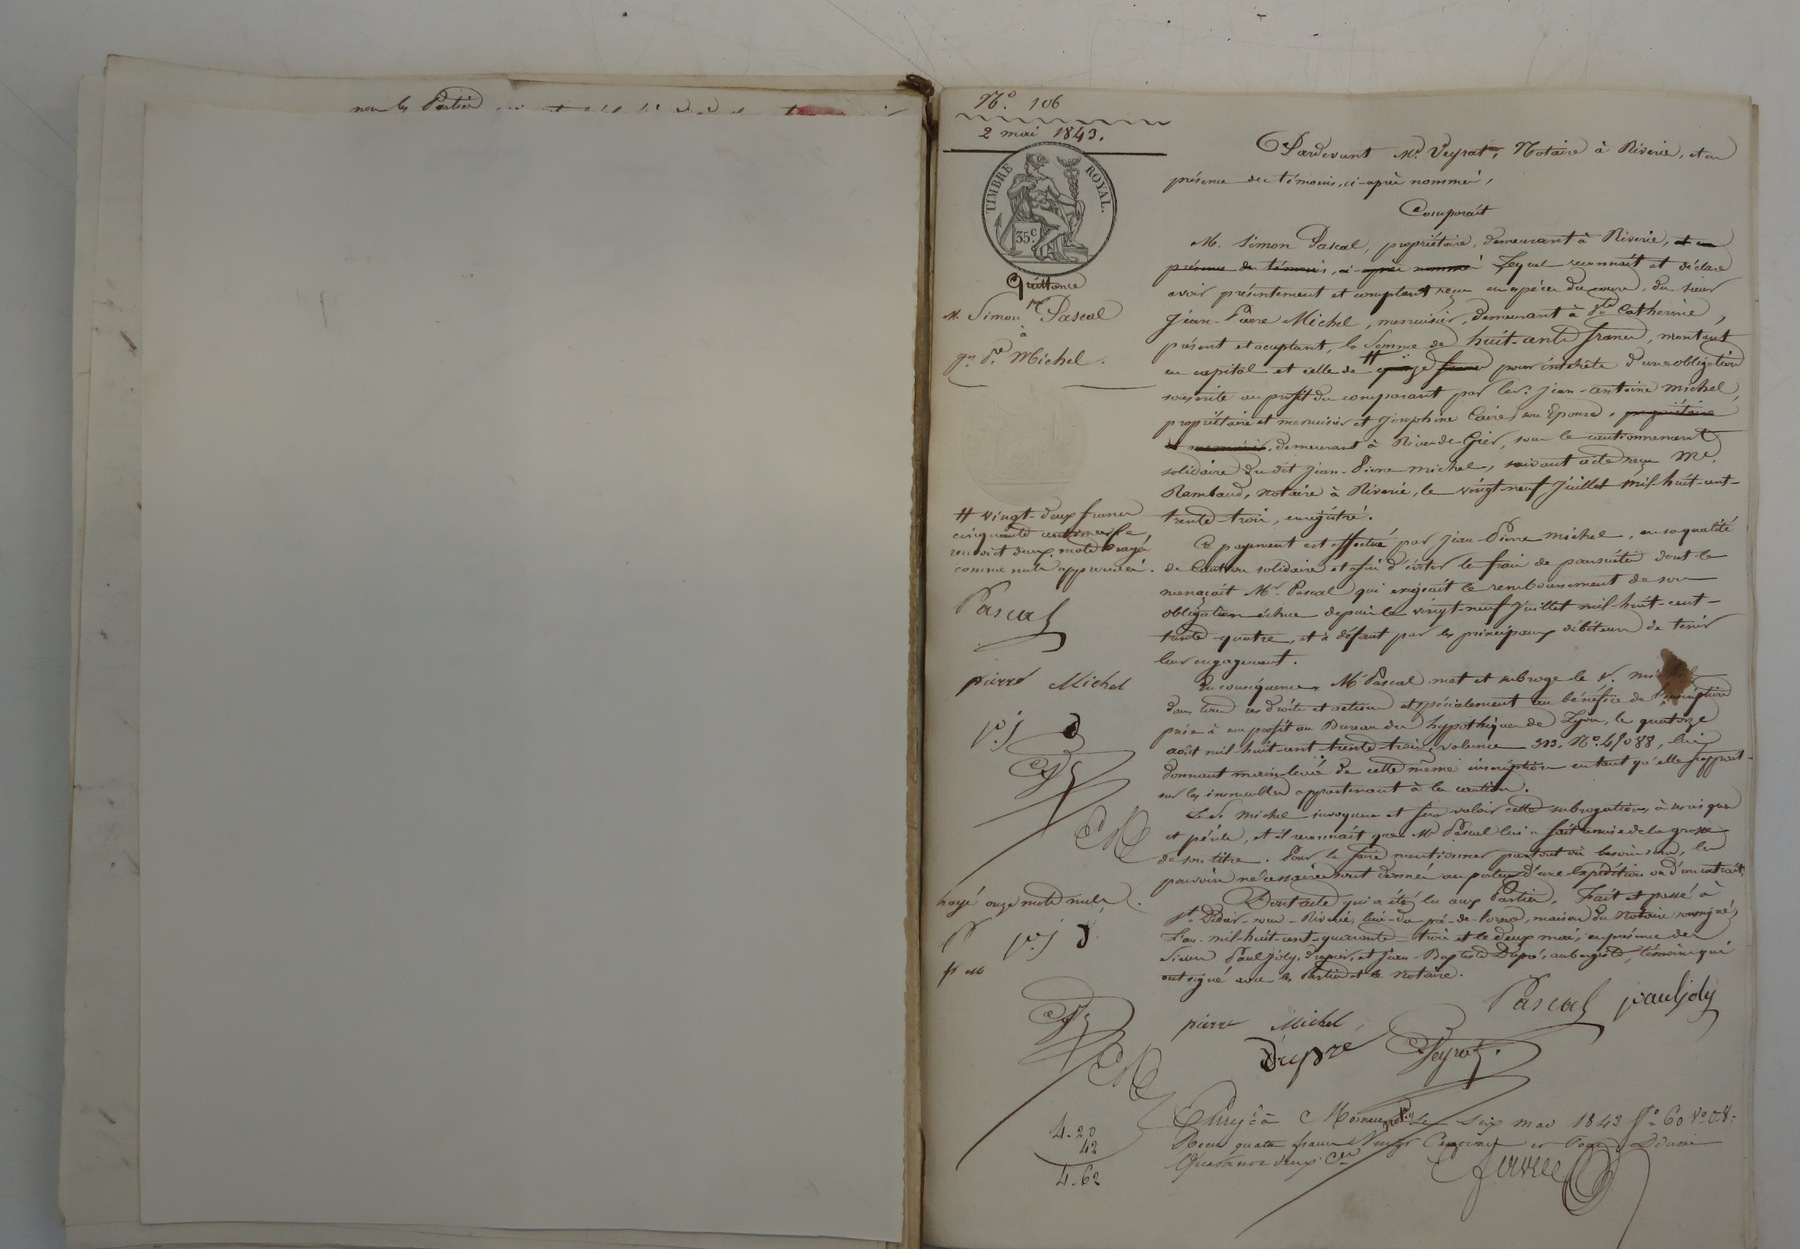 nous les Parties
N.° 106
2 mai 1843.
TIMBRE ROYAL.
35 c.
Quittance
par
M. Simon Pascal
à
Jn. Pre. Michel.
Pardevant Me. Veyrat, Notaire à Riverie, et en
présence des témoins, ci-après nommés,
Comparait
M. Simon Pascal, propriétaire, demeurant à Riverie, et en
présence des témoins, ci-après nommés Lequel reconnait et déclare
avoir présentement et comptant reçu en espèces du cours, du sieur
Jean-Pierre Michel, menuisier, demeurant à Ste. Catherine,
présent et acceptant, la somme de huit-cents francs, montant
en capital et celle de # quinze francs pour intérêts d'une obligation
souscrite au profit du comparant par le sr. Jean-Antoine Michel,
propriétaire et menuisier et Josephine Caire, son Epouse, propriétaire
et menuisier, demeurant à Rive-de-Gier, sous le cautionnement
solidaire du dit Jean-Pierre Michel, suivant acte reçu Me.
Rambaud, notaire à Riverie, le vingt-neuf Juillet mil-huit-cent-
trente-trois, enregistré.
# vingt-deux francs
cinquante centimes le
renvoi et deux mots rayés
comme nuls approuvés.
Pascal
pierre Michel
p. j D
Ce payement est effectué par Jean-Pierre Michel, en sa qualité
de Caution solidaire et afin d'éviter les frais de poursuites dont le
menaçait Mr. Pascal qui exigeait le remboursement de son
obligation échue depuis le vingt-neuf Juillet mil-huit-cent-
trente-quatre, et à défaut par les principaux débiteurs de tenir
leur engagement.
En conséquence, Mr Pascal met et subroge le s.
dans tous ses droits et actions et spécialement au bénéfice de l'inscription
prise à son profit au Bureau des hypothèques de Lyon, le quatorze
août mil-huit-cent-trente-trois, volume 313, No. 45088, lui
donnant main-levée de cette même inscription en tant qu'elle frapperait
sur les immeubles appartenant à la caution.
Le Sr. Michel invoquera et fera valoir cette subrogation à ses risques
et périls, et il reconnait que Mr. Pascal lui a fait remise de la grosse
de son titre. Pour le faire mentionner partout où besoin sera, les
pouvoirs nécessaires sont donnés au porteur d'une expédition ou d'un extrait.
rayé onze mots nuls
P p. j D
p M
Dont acte qui a été lu aux Parties. Fait et passé à
St. Didier-sous-Riverie, lieu-du-pré-de-l'orme, maison du Notaire soussigné,
L'an mil-huit-cent-quarante-trois et le deux mai, en présence des
Sieurs Paul Joly, drapier, et Jean-Baptiste Dupré, aubergiste, témoins qui
ont signé avec les Parties et le Notaire.
Pascal paul joly
pierre Michel
Dupré Veyrat.
Enreg. à Mornant le six mai 1843 f° 60 v° c 8.
Reçu quatre francs vingt centimes et pour Décime
Quarante deux Ces.
4-20
42
4-62